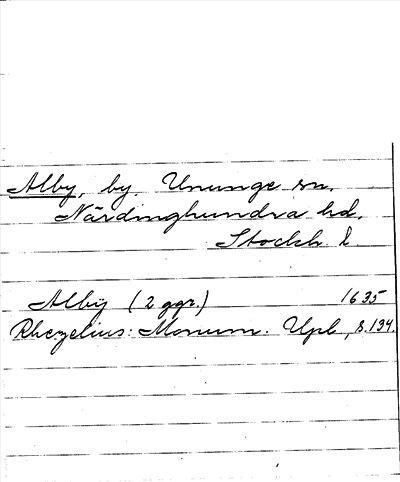 Alby, by. Ununge sn.
Närdinghundra hd.
Stockh. l.
Alby (2 ggr.) 1635
Rhezelius: Monum. Upl., s. 134.